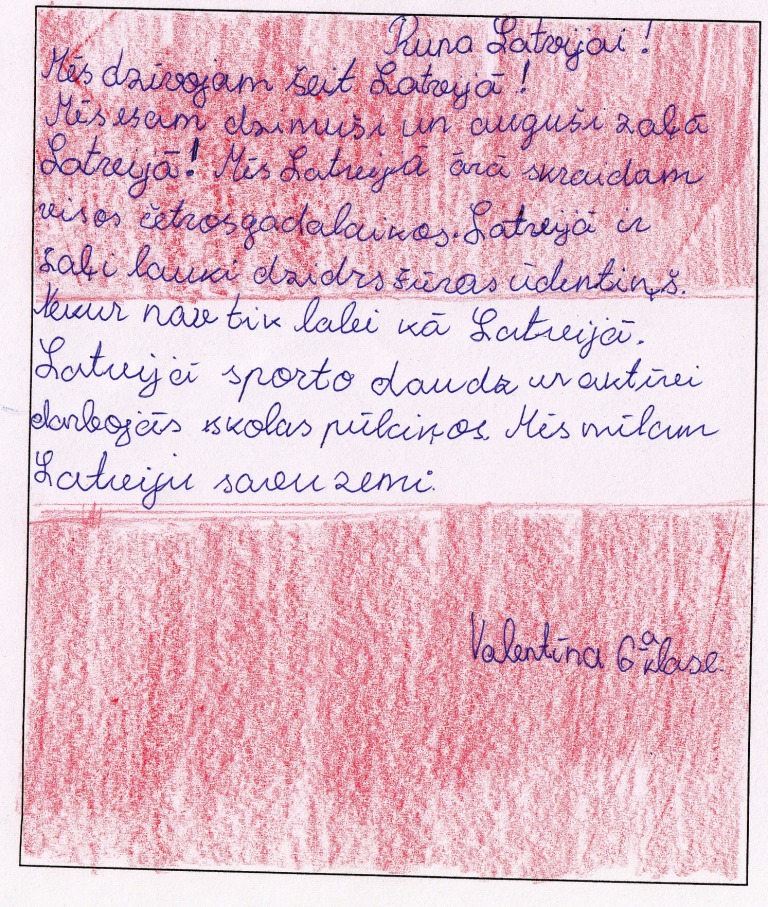 Runa Latvijai!
Mēs dzīvojam šeit Latvejā!
Mēs esam dzimuši un auguši zaļā
Latveijā! Mēs Latveijā ārā skraidam
visos četros gadalaikos. Latvejā ir
zaļi lauki dzidrs šūras ūdentiņš.
Nekur nav tik labi kā Latveijā.
Latveijā sporto daudz un aktīvi
darbojās skolas pūlciņos. Mēs mīlam
Latveiju savu zemi.
Valentīna 6 a klase.